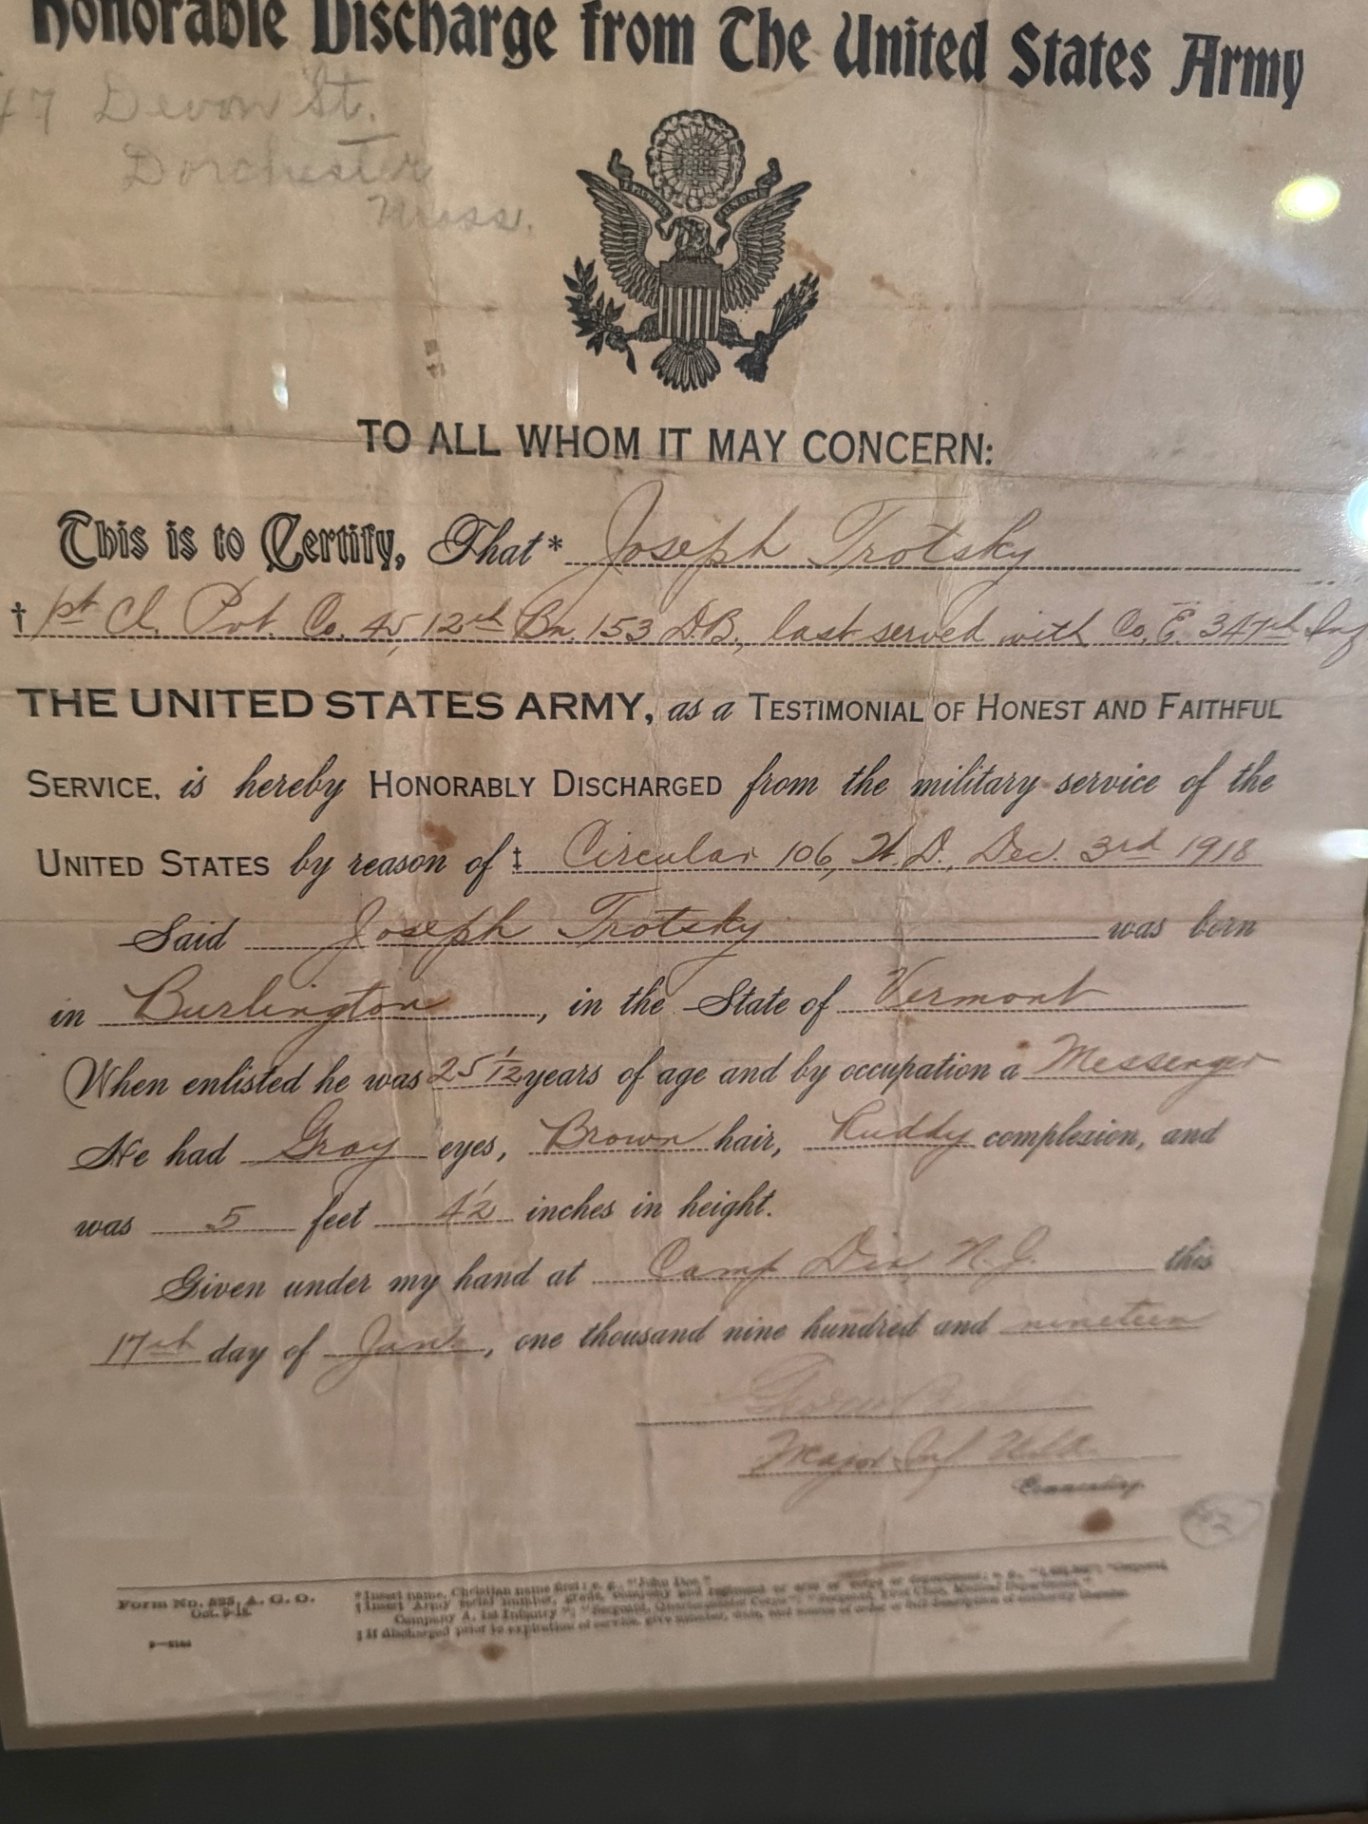 Honorable Discharge from The United States Army
47 Devon St.
Dorchester
Mass.
TO ALL WHOM IT MAY CONCERN:
This is to Certify, That* Joseph Trotsky
† 1st Cl. Pvt. Co. 45, 12th Bn 153 D.B., last served with Co. E. 347th Inf
THE UNITED STATES ARMY, as a TESTIMONIAL OF HONEST AND FAITHFUL
SERVICE, is hereby HONORABLY DISCHARGED from the military service of the
UNITED STATES by reason of ‡ Circular 106, W.D., Dec. 3rd 1918
Said Joseph Trotsky was born
in Burlington, in the State of Vermont
When enlisted he was 25 1/2 years of age and by occupation a Messenger
He had Gray eyes, Brown hair, Ruddy complexion, and
was 5 feet 4 1/2 inches in height.
Given under my hand at Camp Dix, N.J. this
17th day of Jan., one thousand nine hundred and nineteen
Major Inf U.S.A.
Commanding.
Form No. 525, A. G. O.
Oct. 9-18.
*Insert name, Christian name first; e. g., "John Doe."
†Insert Army serial number, grade, company and regiment or arm or corps or department; e. g., "Corporal,
Company A, 1st Infantry"; "Sergeant, Quartermaster Corps"; "Sergeant, First Class, Medical Department."
‡If discharged prior to expiration of service, give number, date, and source of order or full description of authority therefor.